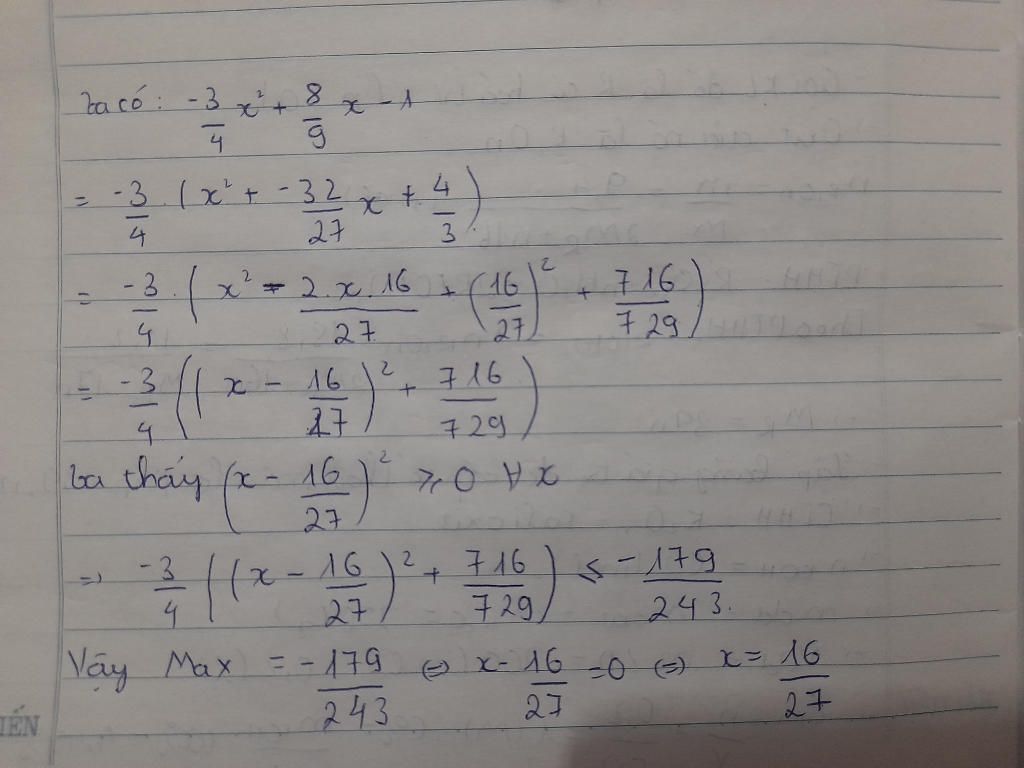 Ta có: -3/4 x² + 8/9 x - 1
= -3/4 . (x² + -32/27 x + 4/3)
= -3/4 . (x² - 2.x.16/27 + (16/27)² + 716/729)
= -3/4 ((x - 16/27)² + 716/729)
Ta thấy (x - 16/27)² ≥ 0 ∀ x
=> -3/4 ((x - 16/27)² + 716/729) ≤ -179/243.
Vậy Max = -179/243 ⇔ x - 16/27 = 0 ⇔ x = 16/27
IẾN